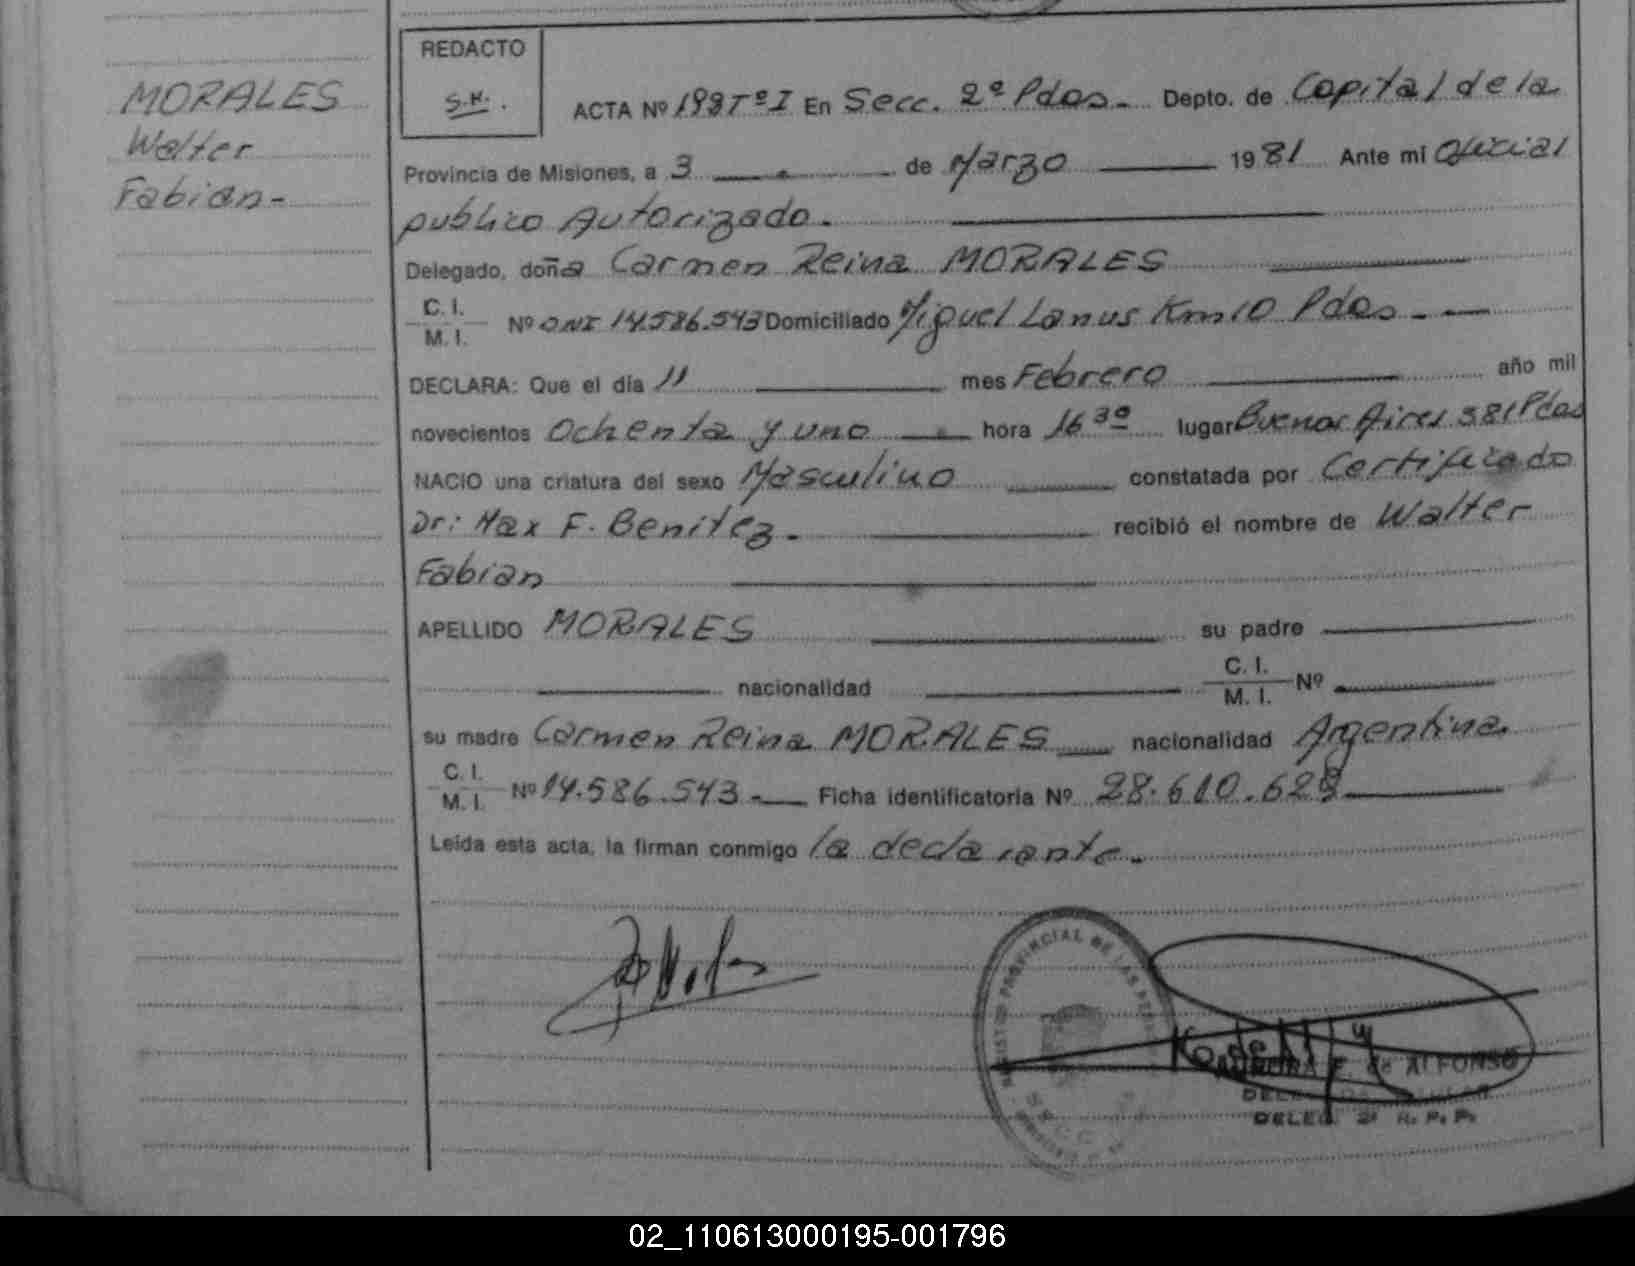 MORALES
Walter
Fabian-
REDACTO
S.H.
ACTA Nº 198 Tº I En Secc. 2º Pdas. Depto. de Capital de la
Provincia de Misiones, a 3 de Marzo 1981 Ante mi Oficial
publico Autorizado.
Delegado, doña Carmen Reina MORALES
C. I.
M. I. Nº DNI 14.586.543 Domiciliado Miguel Lanus Km 10 Pdas.
DECLARA: Que el día 11 mes Febrero año mil
novecientos Ochenta y uno hora 16 30 lugar Buenos Aires 381 Pdas
NACIO una criatura del sexo Masculino constatada por Certificado
Dr: Max F. Benitez. recibió el nombre de Walter
Fabian
APELLIDO MORALES su padre
nacionalidad C. I.
M. I. Nº
su madre Carmen Reina MORALES nacionalidad Argentina.
C. I.
M. I. Nº 14.586.543.- Ficha identificatoria Nº 28.610.628
Leída esta acta, la firman conmigo la declarante.
PROVINCIAL DE LAS
F. de ALFONSO
DELEG. 2ª R. P. P.
02_110613000195-001796